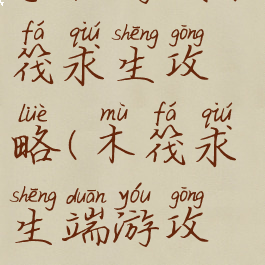 fá qiú shēng gōng
筏求生攻
lüè mù fá qiú
略(木筏求
shēng duān yóu gōng
生端游攻